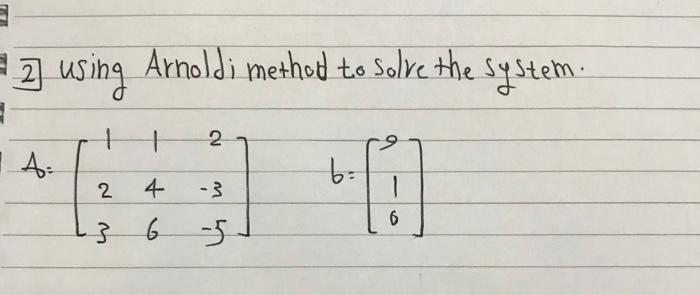 2 using Arnoldi method to solve the system.
1 1 2 9
A= 2 4 -3 b= 1
3 6 -5 6